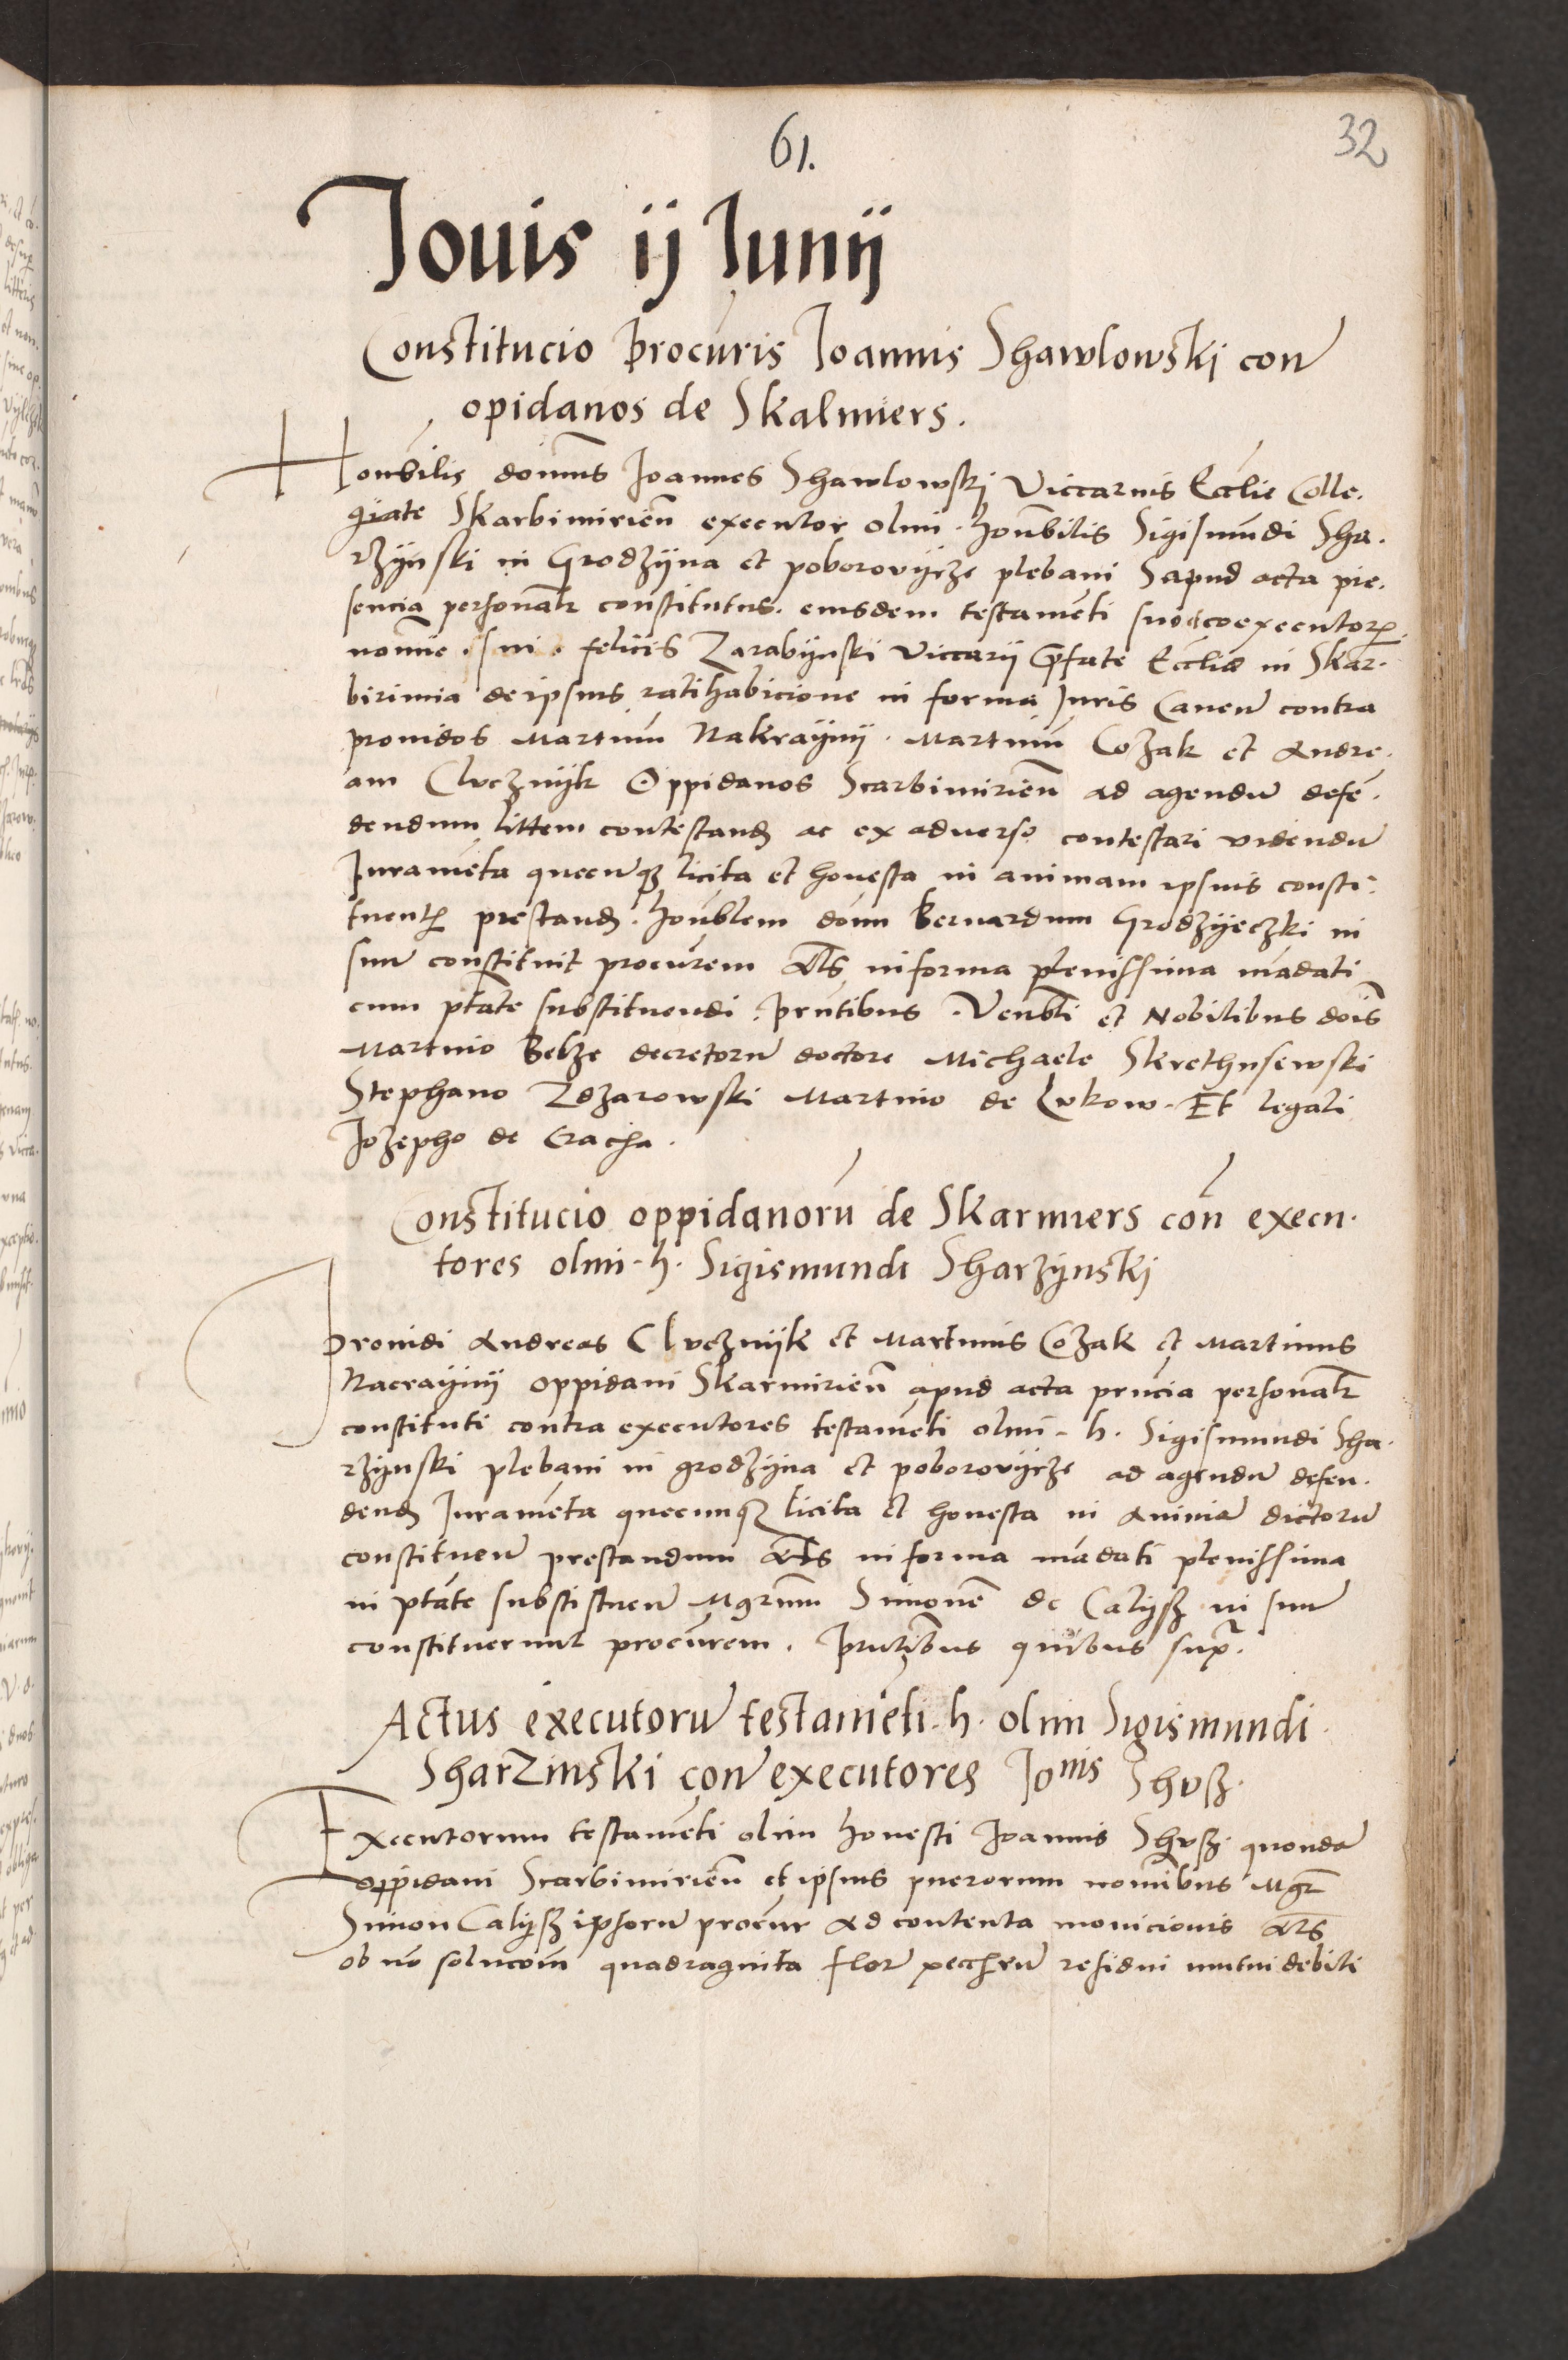 61.
32
Jouis ij Junij
Constitucio procuris Joannis Shawlowskj con
opidanos de Skalmiers.
Honbilis domns Joannes Shawlowskj Viccarius Ecclie Colle.
giate Skarbimirien executor olim honbilis Sigismundi Sha.
rzynski in Grodzyna et poborovycze plebani apud acta pre.
sencia personalr constitutus. eiusdem testamenti suo coexecutor
nomine sui felicis Zarabynski Viccarij Prefate Ecclie in Skar.
birimia de ipsius ratihabicione in forma Juris Cauen contra
prouidos Martinu Nakrayny. Martinu Cozak et Andre.
am Cluznyk Oppidanos Scarbimirien ad agendu defen.
dendum littem contestand ac ex aduerso contestari videndu
Jurameta quecunqz licita et honesta in animam ipsius consti.
tuent prestand. honblem domn Bernardum Grodzyeczki in
suu constituit procurem als in forma plenissima madati
cum ptate substituendi. Prntibus. Venbli et Nobilibus dois
Martino Belze decretoru doctore Michaele Skrethusewski
Stephano Zdzarowski Martino de Lukow. Et legali
Jozepho de Cracha.
Constitucio oppidanoru de Skarmiers con execu.
tores olim. h. Sigismundi Sharzynskj
Prouidi Andreas Cluznyk et Martinus Cozak et Martinus
Nacrayny oppidani Skarmirien apud acta prncia personalr
constituti contra executores testameti olim. h. Sigismundi Sha.
rzynski plebani in grodzyna et poborovycze ad agendu defen.
dend Jurameta quecunqz licita et honesta in Anima dictoru
constituen prestandum als in forma madati plenissima
in ptate substituen Mgrum Simone de Calysz in suu
constituerunt procurem. Prntibus quibus supr.
Actus executoru testameti. h. olim Sigismundi
Sharzinski con executores Jonis Shvsz.
Executorum testameti olim honesti Joannis Shvsz quonda
oppidani Scarbimirien et ipsius puerorum nominibus Mgr
Simon Calysz ipsoru procur ad contenta monicionis als
ob no solucom quadraginta flor residui mutui debiti